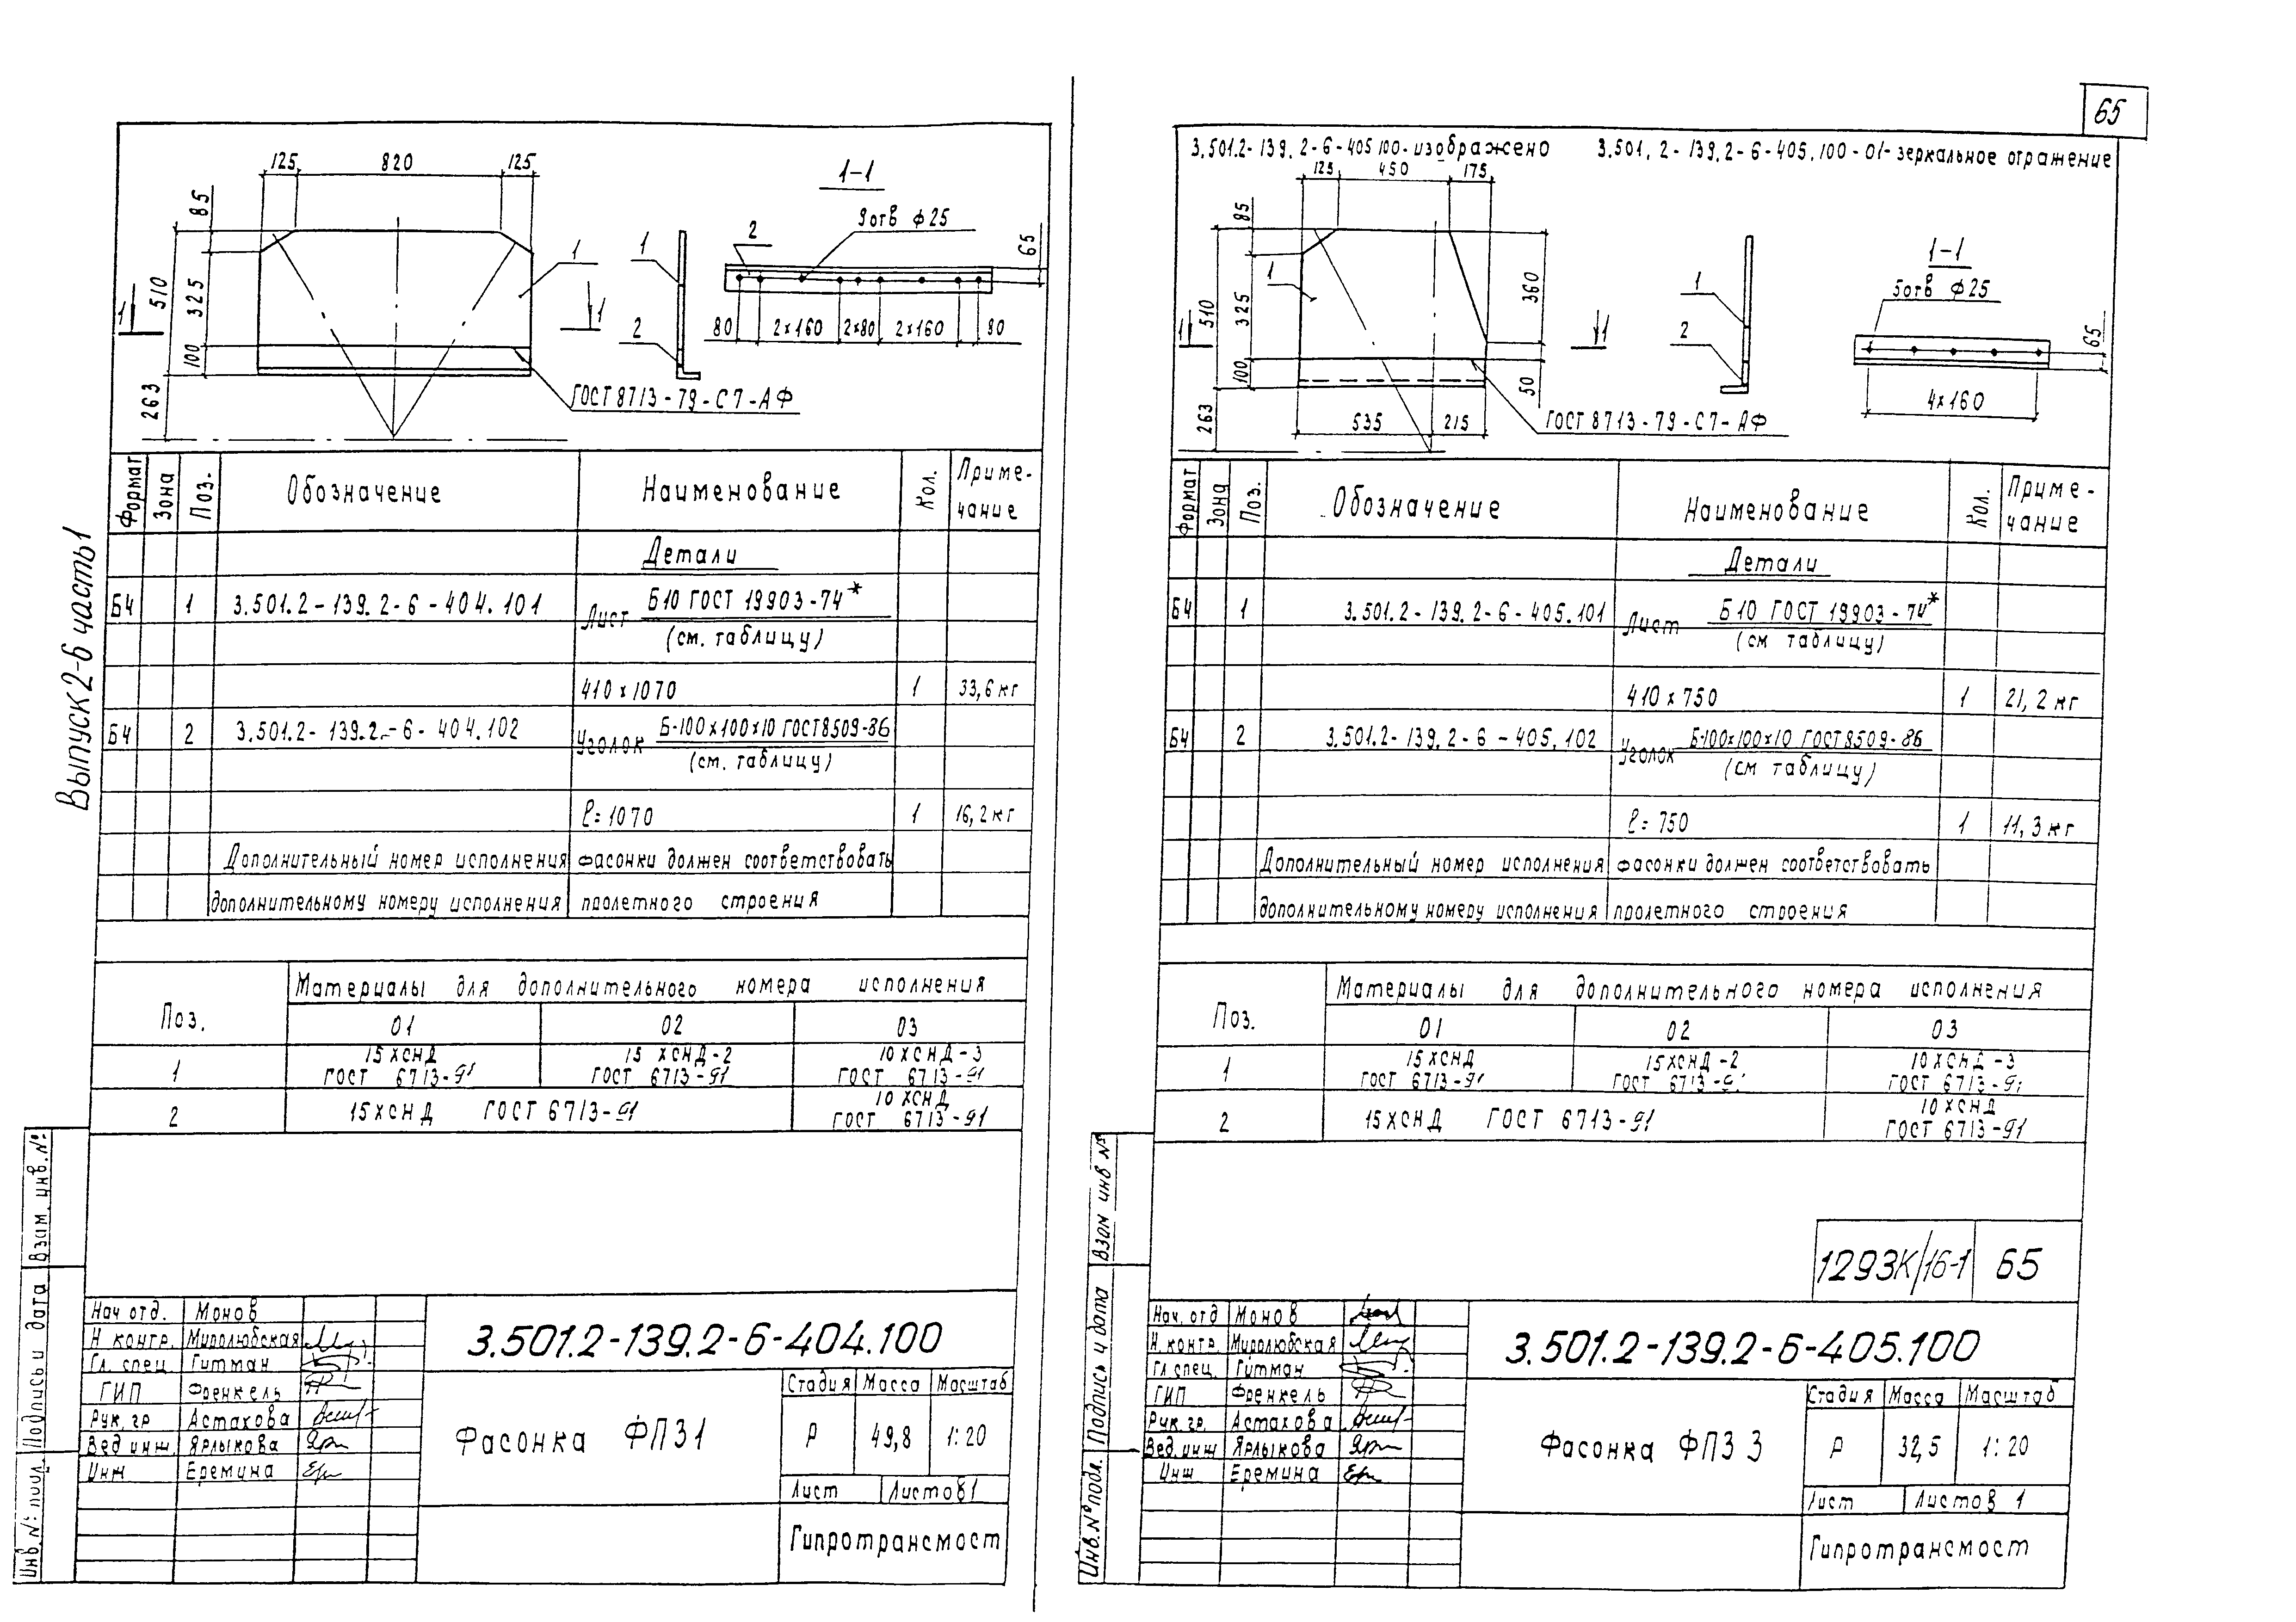 65
Выпуск 2-6 часть 1
125 820 125
85
510
325
100
263
1
1
1
2
1-1
2
9отв ф25
65
80 2×160 2×80 2×160 80
1
1
ГОСТ 8713-79-С7-АФ
Формат Зона Поз. Обозначение Наименование Кол. Приме-
чание
Детали
Б4 1 3.501.2-139.2-6-404.101 Лист Б10 ГОСТ 19903-74*
(см. таблицу)
410×1070 1 33,6кг
Б4 2 3.501.2-139.2-6-404.102 Уголок Б-100×100×10 ГОСТ 8509-86
(см. таблицу)
ℓ=1070 1 16,2кг
Дополнительный номер исполнения фасонки должен соответствовать
дополнительному номеру исполнения пролетного строения
Поз. Материалы для дополнительного номера исполнения
01 02 03
1 15ХСНД 15 ХСНД-2 10ХСНД-3
ГОСТ 6713-91 ГОСТ 6713-91 ГОСТ 6713-91
2 15ХСНД ГОСТ 6713-91 10 ХСНД
ГОСТ 6713-91
Взам. инв. №
Подпись и дата
Инв. № подл.
Нач отд. Монов
Н контр. Миролюбская
Гл. спец. Гитман
ГИП Френкель
Рук. гр Астахова
Вед инж. Ярлыкова
Инж Еремина
3.501.2-139.2-6-404.100
Фасонка ФП31
Стадия Масса Масштаб
Р 49,8 1:20
Лист Листов 1
Гипротрансмост
3.501.2-139.2-6-405.100-изображено 3.501.2-139.2-6-405.100-01-зеркальное отражение
125 450 175
85
510
325
100
263
1
360
50
535 215
1
1
1
2
1-1
5отв ф25
65
4×160
ГОСТ 8713-79-С7-АФ
Формат Зона Поз. Обозначение Наименование Кол. Приме-
чание
Детали
Б4 1 3.501.2-139.2-6-405.101 Лист Б10 ГОСТ 19903-74*
(см таблицу)
410×750 1 21,2кг
Б4 2 3.501.2-139.2-6-405.102 Уголок Б-100×100×10 ГОСТ 8509-86
(см таблицу)
ℓ=750 1 11,3кг
Дополнительный номер исполнения фасонки должен соответствовать
дополнительному номеру исполнения пролетного строения
Поз. Материалы для дополнительного номера исполнения
01 02 03
1 15ХСНД 15ХСНД-2 10ХСНД-3
ГОСТ 6713-91 ГОСТ 6713-91 ГОСТ 6713-91
2 15ХСНД ГОСТ 6713-91 10ХСНД
ГОСТ 6713-91
1293К/16-1 65
Взам инв №
Подпись и дата
Инв. № подл.
Нач. отд Монов
Н. контр. Миролюбская
Гл спец. Гитман
ГИП Френкель
Рук. гр. Астахова
Вед. инж Ярлыкова
Инж Еремина
3.501.2-139.2-6-405.100
Фасонка ФП33
Стадия Масса Масштаб
Р 32,5 1:20
Лист Листов 1
Гипротрансмост